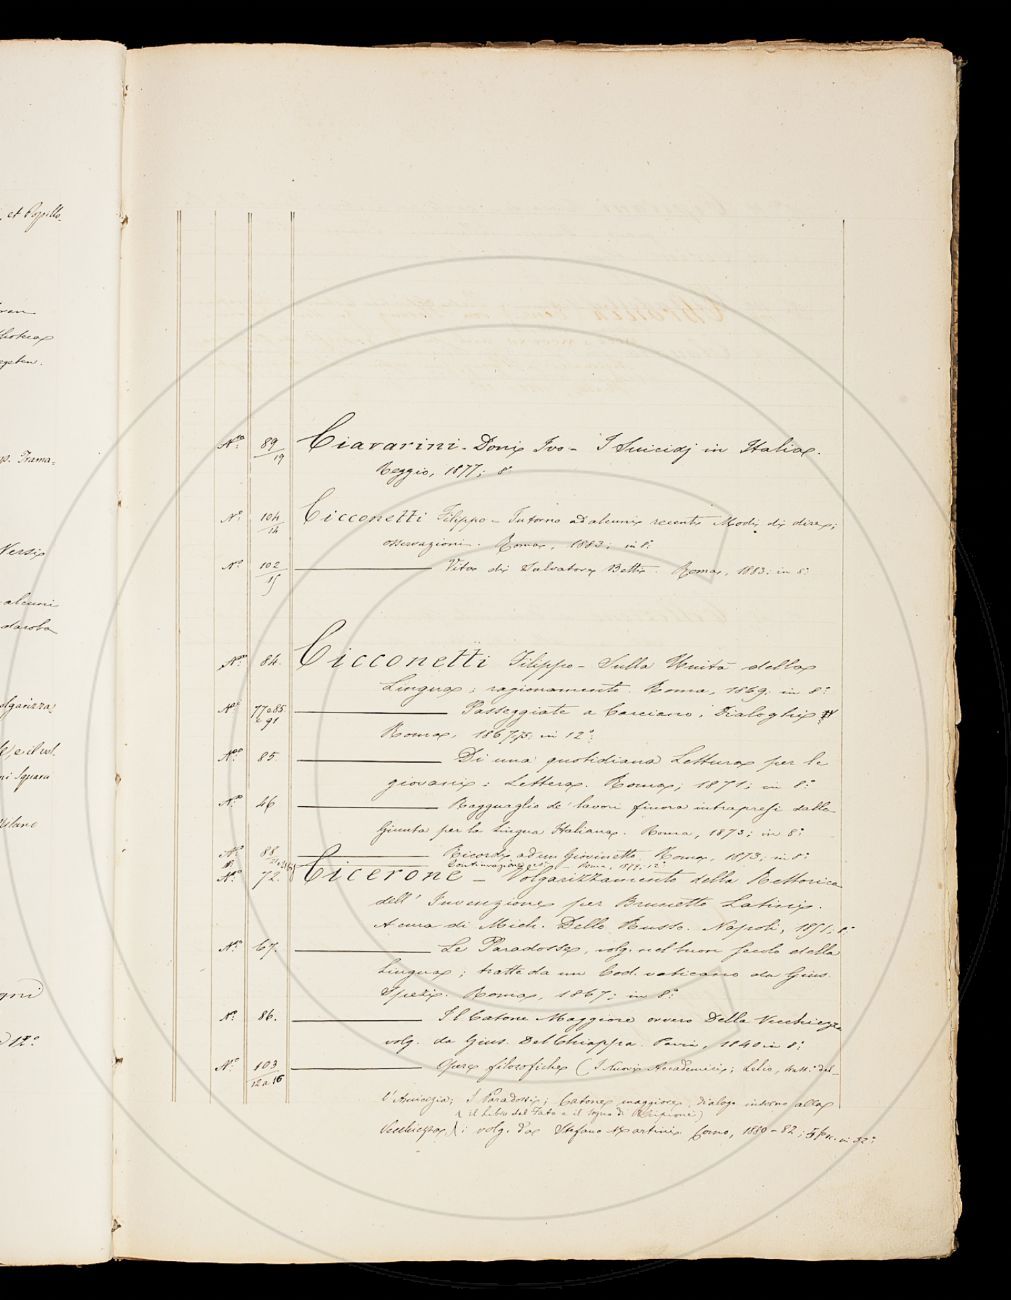 et Popillo.
alcuni
12.º
Nº 89/19 Ciavarini-Doni Ivo - I Suicidj in Italia.
Reggio, 1877; 8º
Nº 104/14 Cicconetti Filippo - Intorno ad alcuni recenti Modi di dire;
osservazioni. Roma, 1883; in 8º
Nº 102/15 ——— Vita di Salvatore Betti. Roma, 1883; in 8º
Nº 84. Cicconetti Filippo - Sulla Unità della
Lingua; ragionamento. Roma, 1869. in 8º
Nº 77 e 85 e 91 ——— Passeggiate a Carciano, Dialoghi
Roma, 1867 in 12º
Nº 85. ——— Di una quotidiana Lettura per le
giovani; Lettera. Roma, 1871; in 8º
Nº 46 ——— Ragguaglio de' lavori finora intrapresi dalla
Giunta per la Lingua Italiana. Roma, 1873; in 8º
Nº 88. ——— Ricordi ad un Giovinetto. Roma, 1873; in 8º
Continuazione Roma, 12º
Nº 72. Cicerone - Volgarizzamento della Rettorica
dell' Invenzione per Brunetto Latini.
A cura di Mich. Dello Russo. Napoli, 1851; 8º
Nº 67. ——— Le Paradosse, volg. nel buon secolo della
Lingua; tratte da un Cod. vaticano da Gius.
Spezi. Roma, 1867; in 8º
Nº 86. ——— Il Catone Maggiore ovvero Della Vecchiezza
volg. da Gius. Del Chiappa. Pavia, 1840 in 8º
Nº 103/12 a 16 ——— Opere filosofiche (I Nuovi Accademici; Lelio, del-
l'Amicizia; I Paradossi; Catone maggiore, Dialogo intorno alla
e il Libro del Fato e il Sogno di Scipione)
Vecchiezza): volg. da Stefano Martini. Como, 1880-82; in 32º